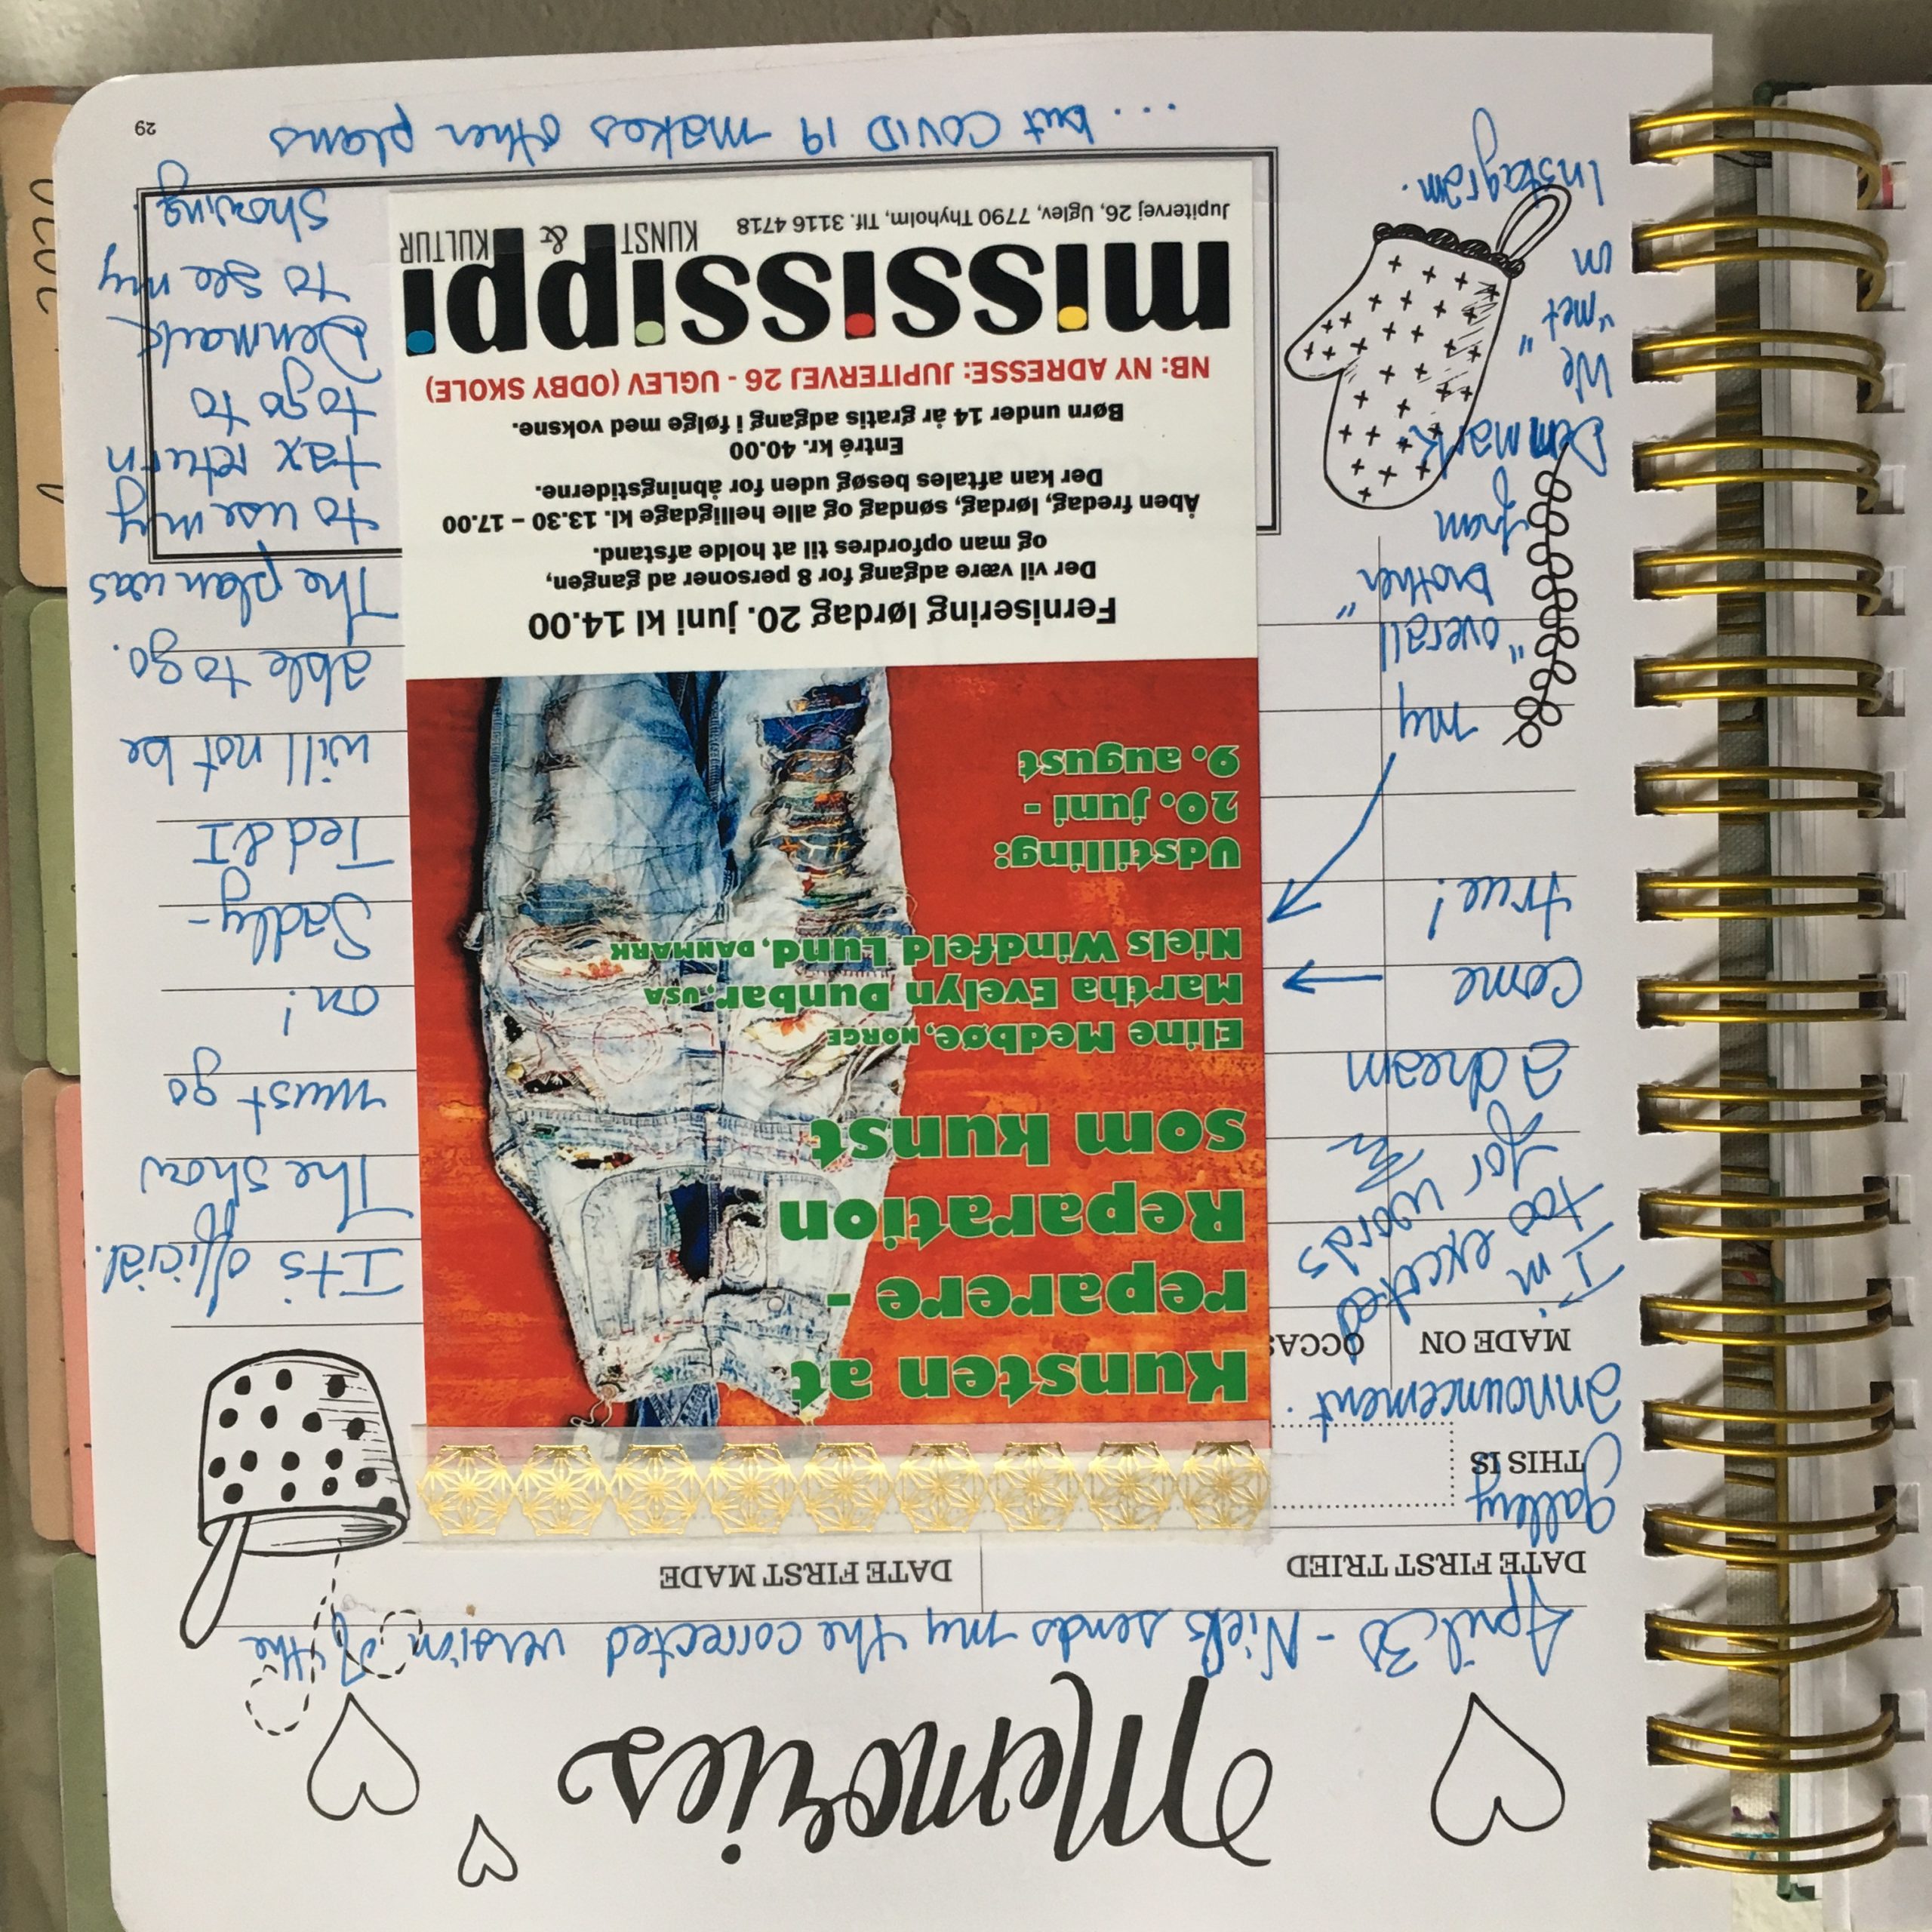 Memories
April 30 - Niels sends my the corrected version of the
DATE FIRST TRIED
DATE FIRST MADE
gallery
THIS IS
announcement.
MADE ON
OCCAS
I'm
too excited
for words
a dream
come
true!
my
"overall
brother"
from
Denmark
We
"met"
on
Instagram.
Kunsten at
reparere -
Reparation
som kunst
Eline Medbøe, NORGE
Martha Evelyn Dunbar, USA
Niels Windfeld Lund, DANMARK
Udstilling:
20. juni -
9. august
Fernisering lørdag 20. juni kl 14.00
Der vil være adgang for 8 personer ad gangen,
og man opfordres til at holde afstand.
Åben fredag, lørdag, søndag og alle helligdage kl. 13.30 – 17.00
Der kan aftales besøg uden for åbningstiderne.
Entré kr. 40.00
Børn under 14 år gratis adgang i følge med voksne.
NB: NY ADRESSE: JUPITERVEJ 26 - UGLEV (ODBY SKOLE)
mississippi
KUNST & KULTUR
Jupitervej 26, Uglev, 7790 Thyholm, Tlf. 3116 4718
Its official.
The show
must go
on!
Sadly-
Ted & I
will not be
able to go.
The plan was
to use my
tax return
to go to
Denmark
to see my
showing
... but COVID 19 makes other plans
29